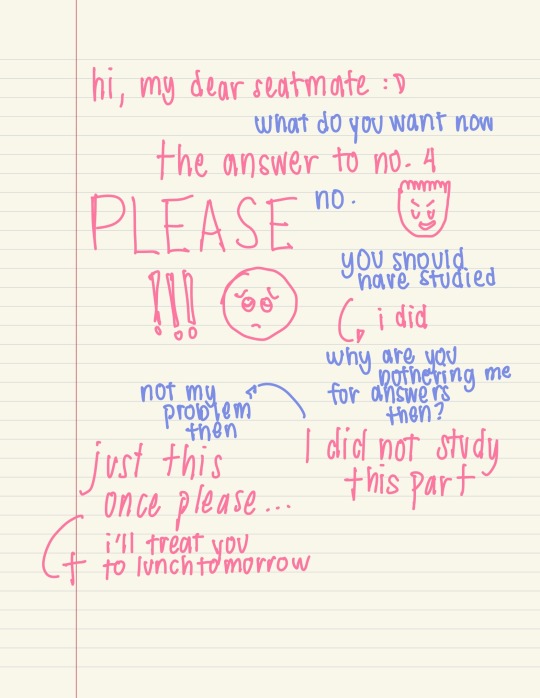 hi, my dear seatmate :D
what do you want now
the answer to no. 4
PLEASE
no.
!!!
you should
have studied
i did
why are you
bothering me
for answers
then?
I did not study
this part
not my
problem
then
just this
once please...
i'll treat you
to lunch tomorrow